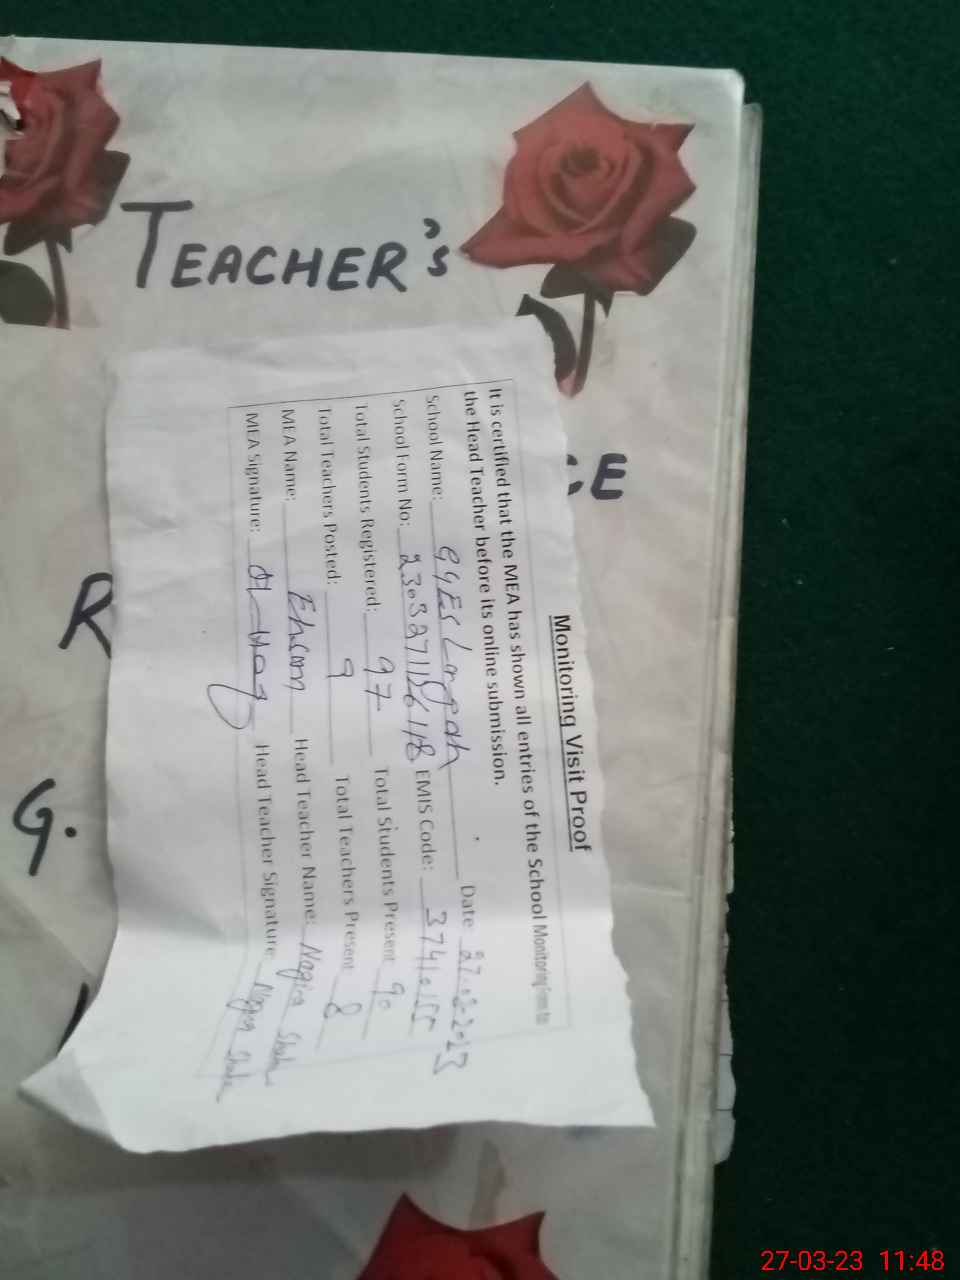 TEACHER's
CE
R
G.
Monitoring Visit Proof
It is certified that the MEA has shown all entries of the School Monitoring form to
the Head Teacher before its online submission.
School Name: GGES Langah Date:
School Form No: EMIS Code:
Total Students Registered: 97 Total Students Present 90
Total Teachers Posted: 9 Total Teachers Present 8
MEA Name: Ehsan Head Teacher Name: Nagina
MEA Signature: Head Teacher Signature: Nagina
27-03-23 11:48